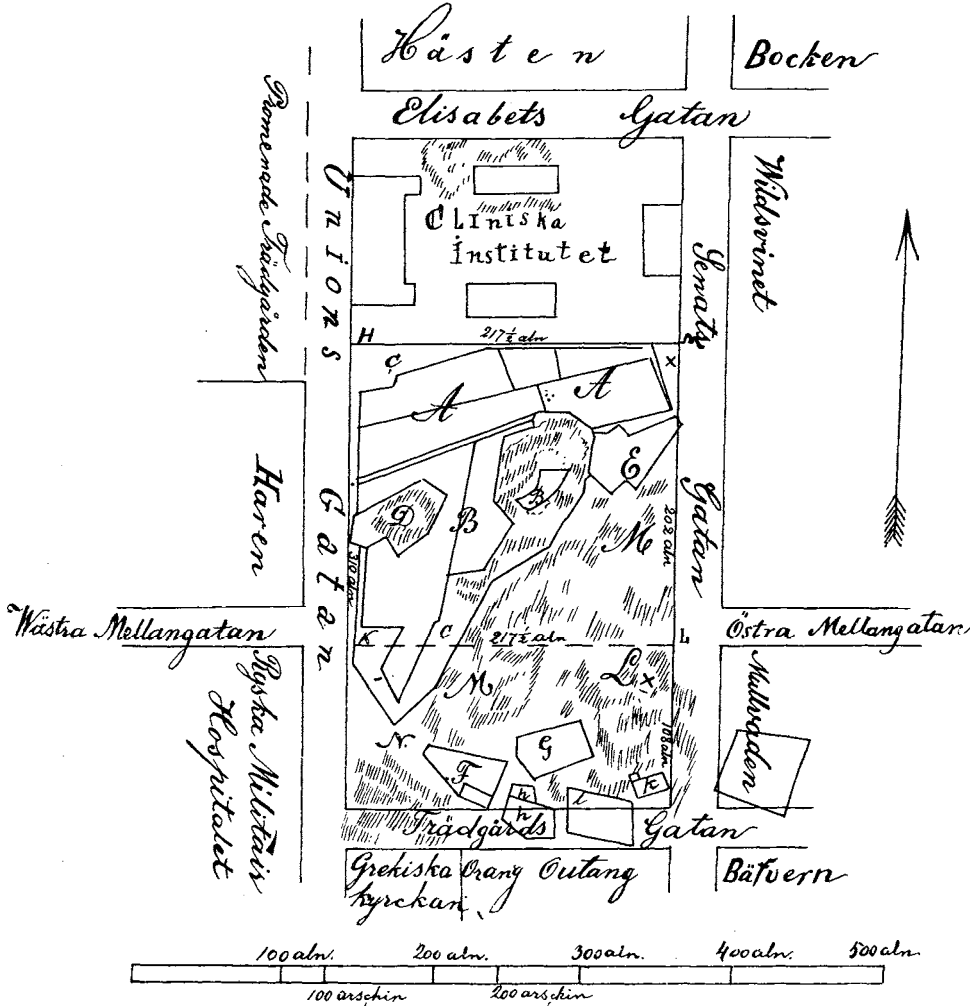 Hästen
Bocken
Elisabets Gatan
Promenade Trädgården
Unions Gatan
Cliniska
Institutet
Senats Gatan
Wildsvinet
H
217½ aln
C
X
A
A
E
Haren
D
B
B
M
202 aln
310 aln
Wästra Mellangatan
K
C
217½ aln
L
Östra Mellangatan
Ryska Militais
Hospitalet
M
L
X
Mullvaden
N.
G
108 aln
F
h
h
i
k
Trädgårds Gatan
Grekiska
kyrckan
Orang Outang
Bäfvern
100 aln. 200 aln. 300 aln. 400 aln. 500 aln.
100 arschin 200 arschin